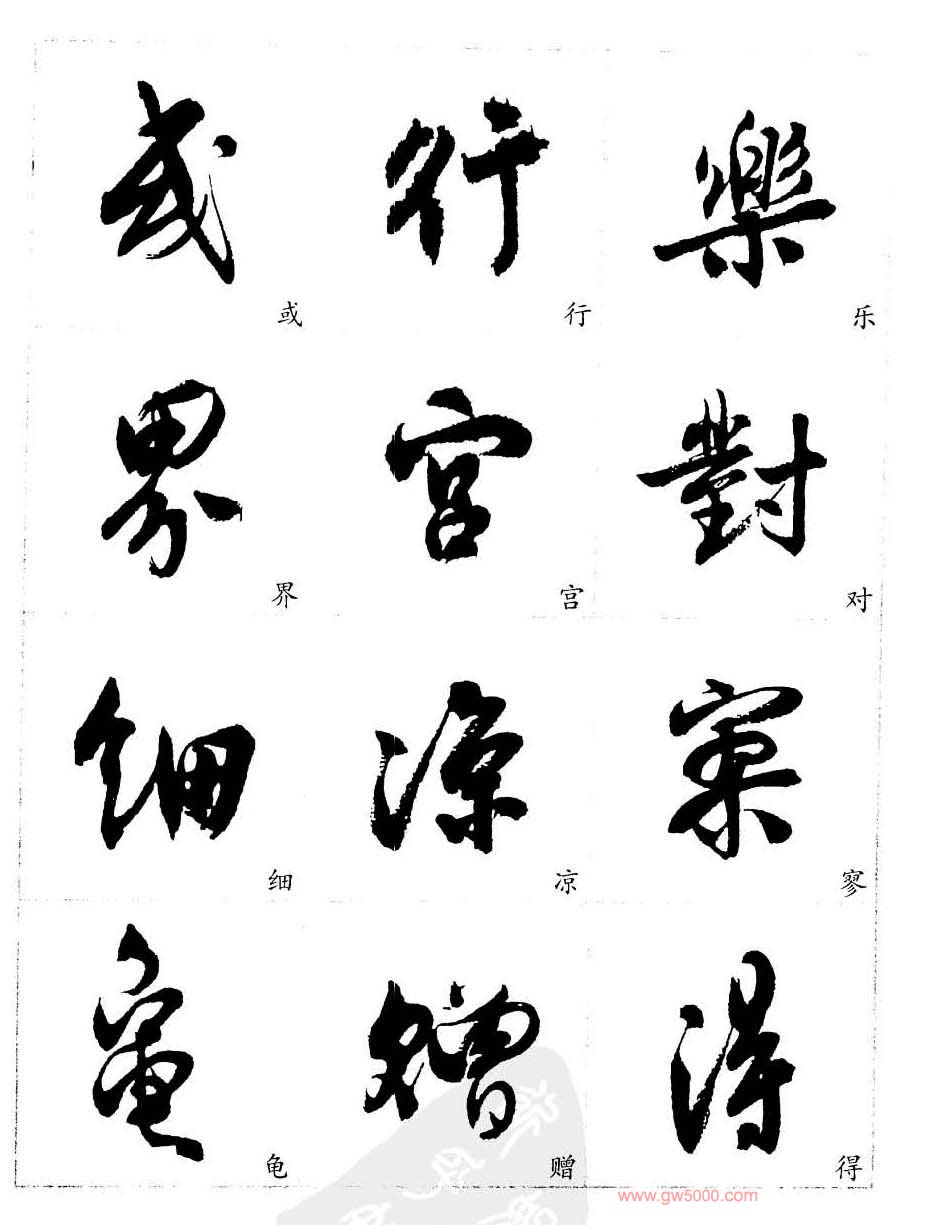 樂 行 或
乐 行 或
對 宫 界
对 宫 界
寥 凉 细
寥 凉 细
得 赠 龟
得 赠 龟
www.gw5000.com